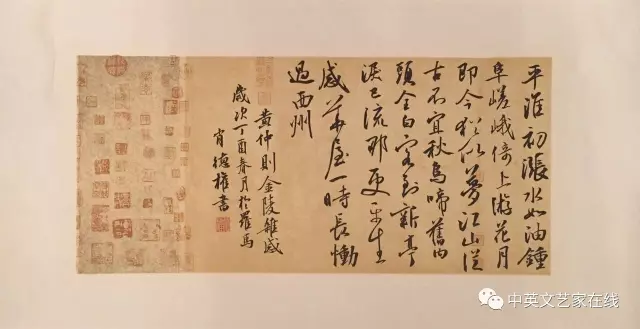 平淮初漲水如油鍾
阜嵯峨倚上游花月
即今猶似夢江山從
古不宜秋烏啼舊內
頭全白客到新亭
淚已流那更平生
感華屋一時長慟
過西州
黄仲則金陵雜感
歲次丁酉春月於羅馬
肖德權書
中英文艺家在线